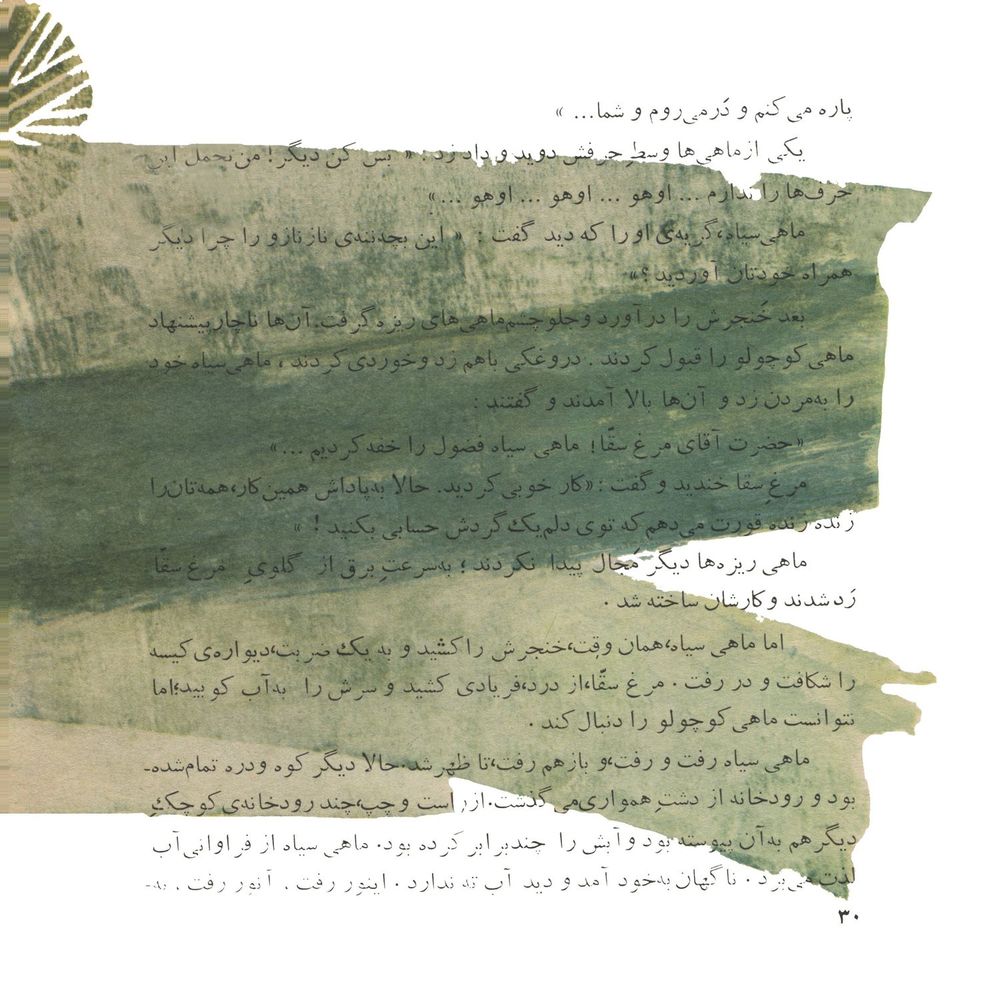 پاره می‌کنم و دَرمی‌روم و شما... »
یکی ازماهی‌ها وسطِ حرفش دوید و داد زد : « بس کن دیگر! من‌تحمل این
حرف‌ها را ندارم ... اوهو ... اوهو ... اوهو ...»
ماهی‌سیاه،گریه‌ی او را که دید گفت : « این بچه‌ننه‌ی نازنازو را چرا دیگر
همراه خودتان آوردید؟»
بعد خُنجرش را درآورد وجلوچشم‌ماهی‌های ریزه گرفت.آن‌ها ناچارپیشنهاد
ماهی‌کوچولو را قبول کردند . دروغکی باهم زد وخوردی کردند ، ماهی‌سیاه خود
را به‌مردن زد و آن‌ها بالا آمدند و گفتند :
«حضرت آقای مرغ سقّا! ماهی سیاه فضول را خفه‌کردیم ...»
مرغ‌ِسقا خندید و گفت : «کار خوبی‌کردید. حالا به‌پاداش همین‌کار،همه‌تان‌را
زنده زنده قورت می‌دهم‌که توی دلم‌یک‌گردش حسابی بکنید ! »
ماهی ریزه‌ها دیگر مَجال پیدا نکردند ؛ به‌سرعتِ برق از گلویِ مرغ سقّا
رَدشدند وکارشان ساخته شد .
اما ماهی سیاه،همان وقت،خنجرش را کشید و به یک ضربت،دیواره‌ی کیسه
را شکافت و در رفت . مرغ سقّا،از درد،فریادی کشید و سرش را به‌آب کوبید؛اما
نتوانست ماهی‌کوچولو را دنبال کند .
ماهی سیاه رفت و رفت،و بازهم رفت،تا ظهرشد.حالا دیگر کوه ودره تمام‌شده-
بود و رودخانه از دشتِ همواری‌می‌گذشت.از راست وچپ،چند رودخانه‌ی کوچکِ
دیگرهم به‌آن پیوسته بود و آبش را چندبرابر کرده بود. ماهی سیاه از فراوانی‌آب
لذت می‌برد . ناگهان به‌خود آمد و دید آب ته ندارد . اینور رفت ، آنور رفت ، به-
۳۰